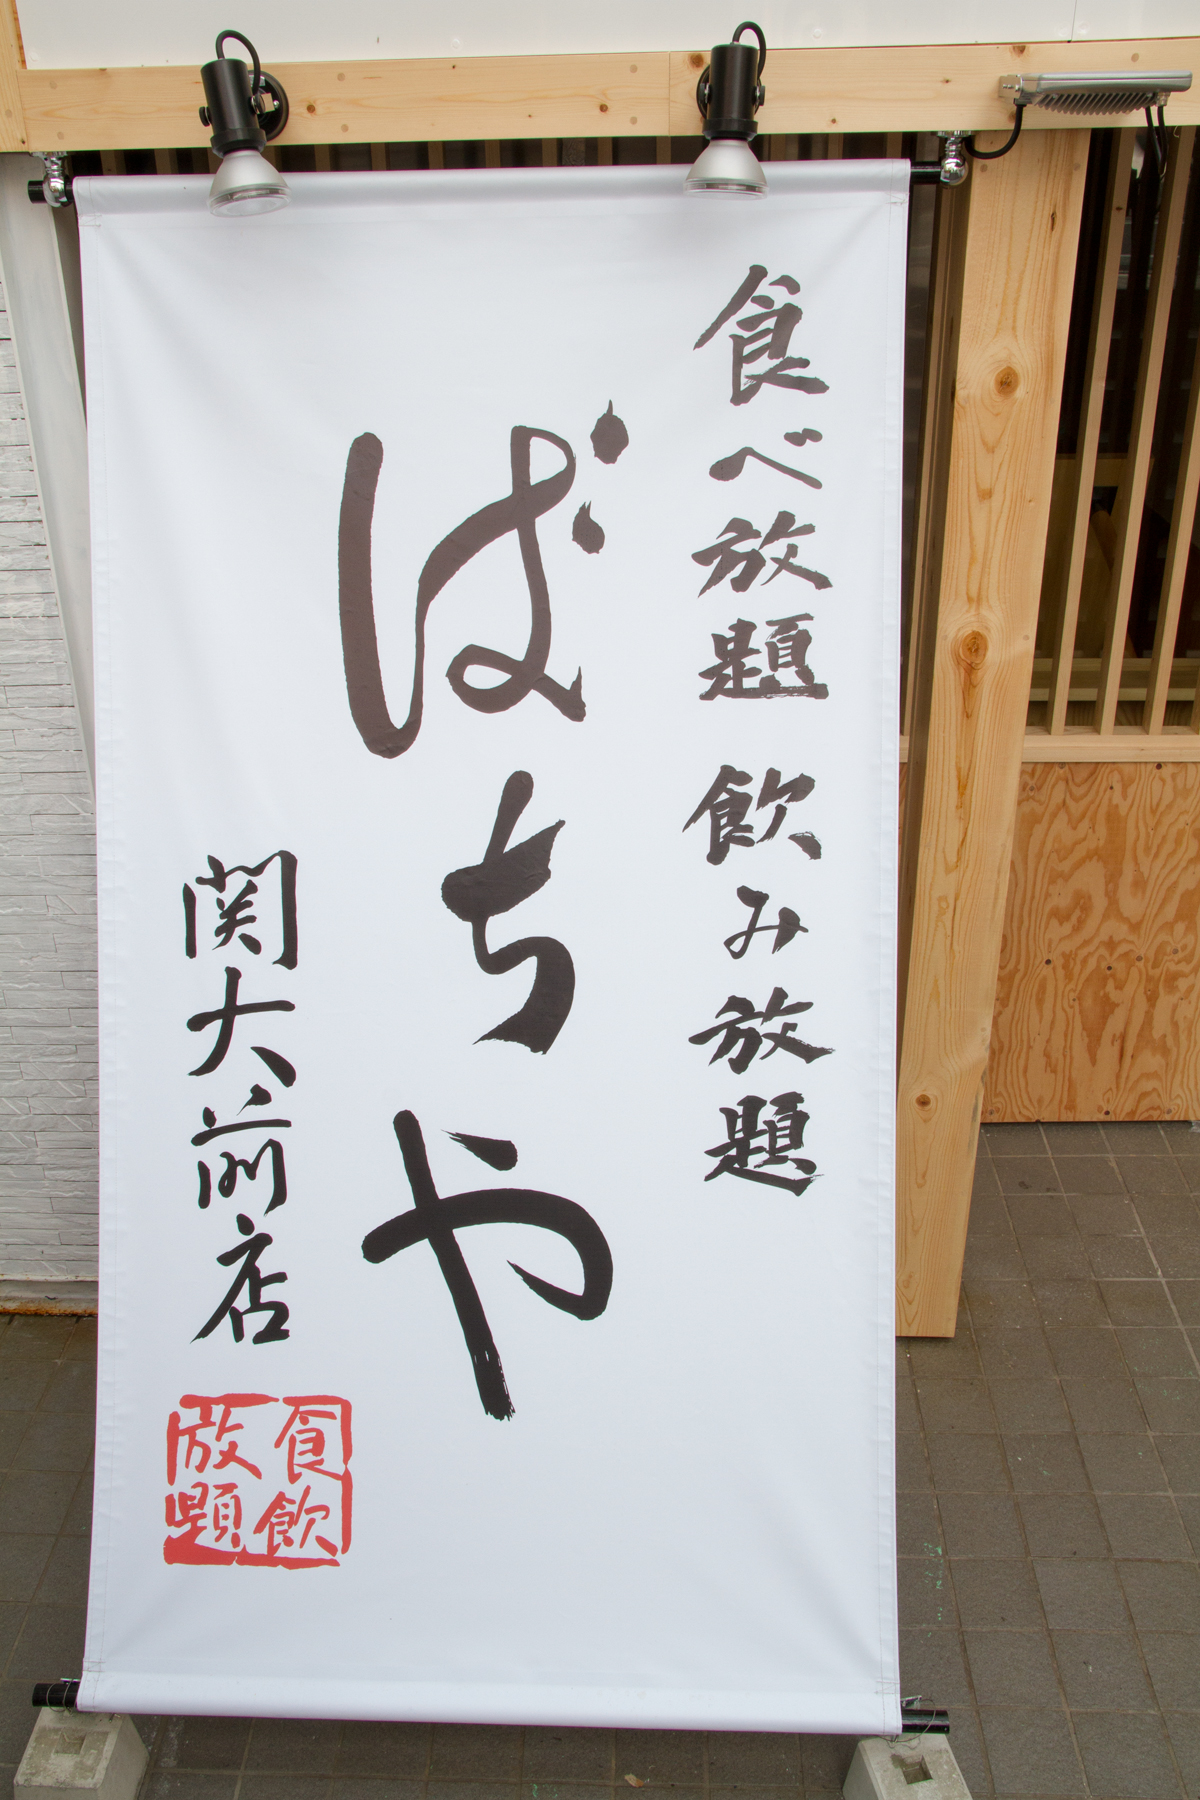 食べ放題 飲み放題
ばちや
関大前店
食飲
放題